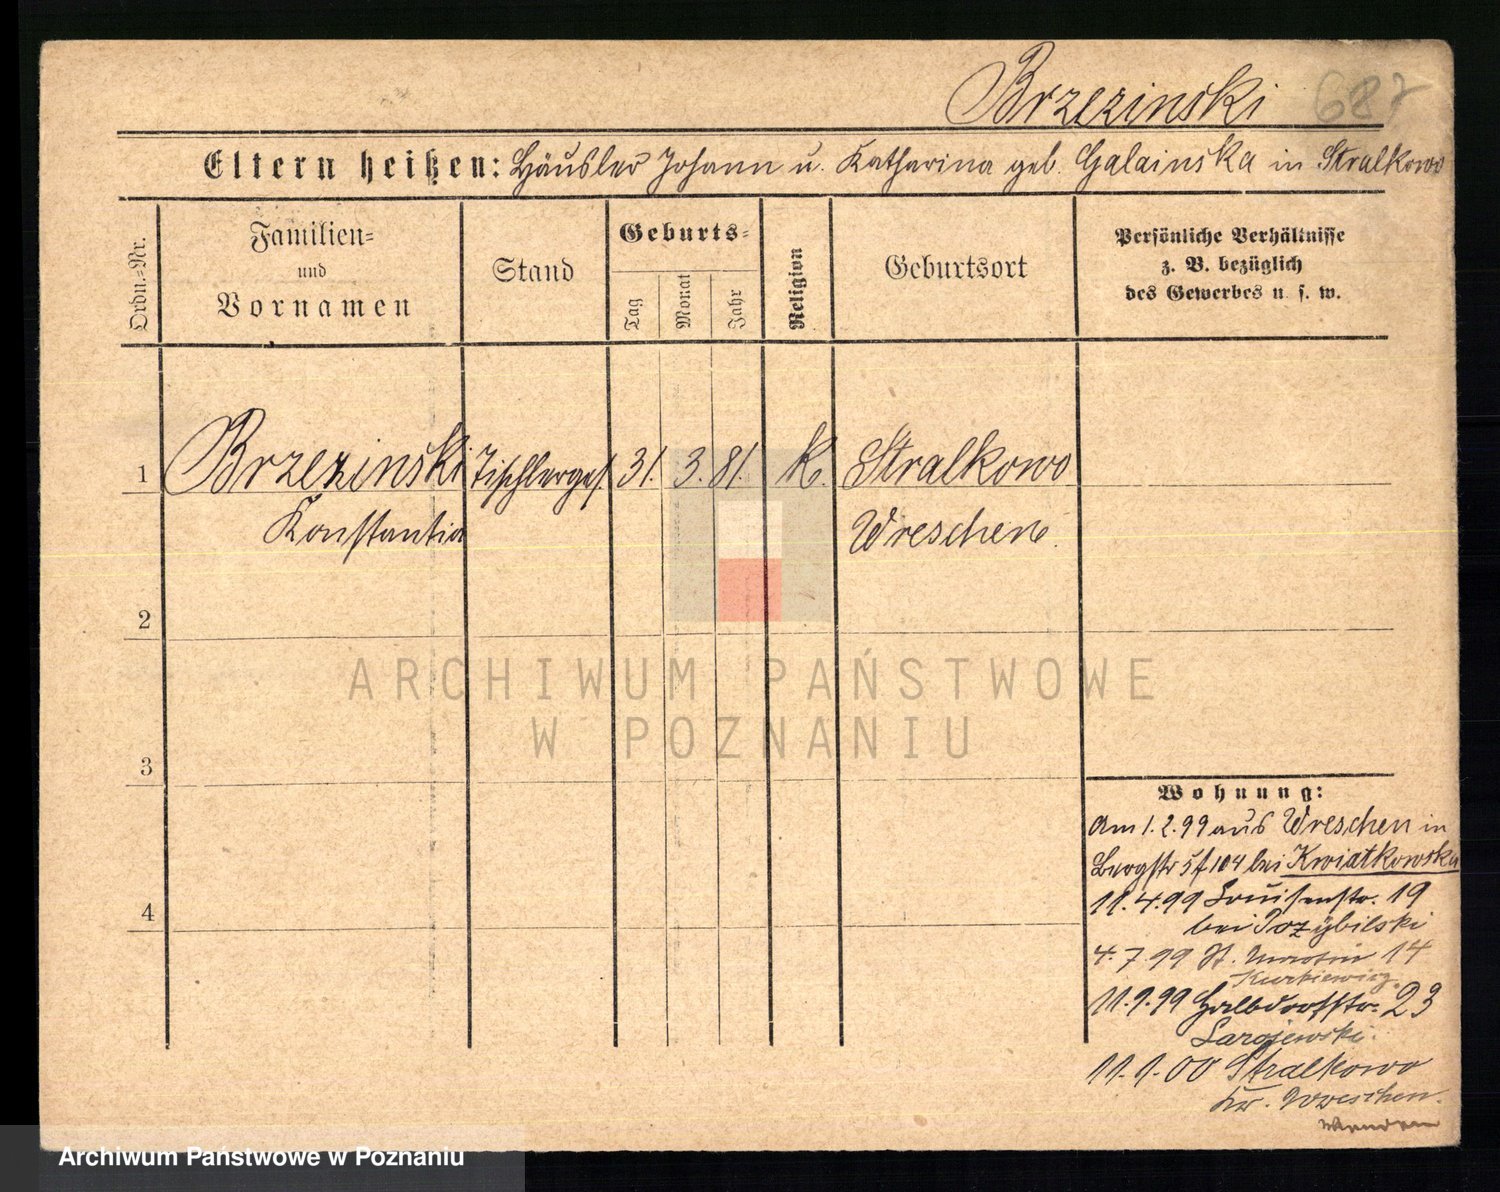 Brzezinski 687
Eltern heißen: Häusler Johann u. Katharina geb. Galainska in Stralkowo
Ordn.=Nr.
Familien=
und
Vornamen
Stand
Geburts=
Tag
Monat
Jahr
Religion
Geburtsort
Persönliche Verhältnisse
z. B. bezüglich
des Gewerbes u. s. w.
1 Brzezinski Tischlerges. 31. 3. 81. K. Stralkowo
Konstantin Wreschen.
2
ARCHIWUM PAŃSTWOWE
W POZNANIU
3
Wohnung:
Am 1.2.99 aus Wreschen in
Bergstr 5 104 bei Kwiatkowska
4
11.4.99 Louisenstr. 19
bei Pozybilski
4.7.99 St. Martin 14
Kurkiewicz.
11.9.99 Halbdorfstr. 23
11.1.00 Stralkowo
Kr. Wreschen.
Wenden
Archiwum Państwowe w Poznaniu